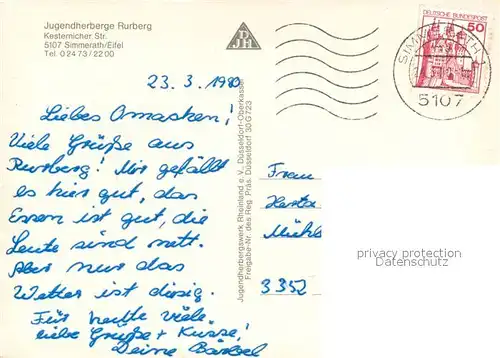 Jugendherberge Rurberg
Kesternicher Str.
5107 Simmerath/Eifel
Tel. 0 24 73 / 22 00
DJH
DEUTSCHE BUNDESPOST
50
SIMMERATH 1
5107
23. 3. 1980
Liebes Omachen!
Viele Grüße aus
Rurberg! Mir gefällt
es hier gut, das
Essen ist gut, die
Leute sind nett.
Aber nur das
Wetter ist diesig.
Für heute viele
liebe Grüße + Küsse!
Deine Bärbel
Jugendherbergswerk Rheinland e.V., Düsseldorf-Oberkassel
Freigabe-Nr. des Reg. Präs. Düsseldorf 30 G 723
Frau
Herta
Mühl
3352
privacy protection
Datenschutz